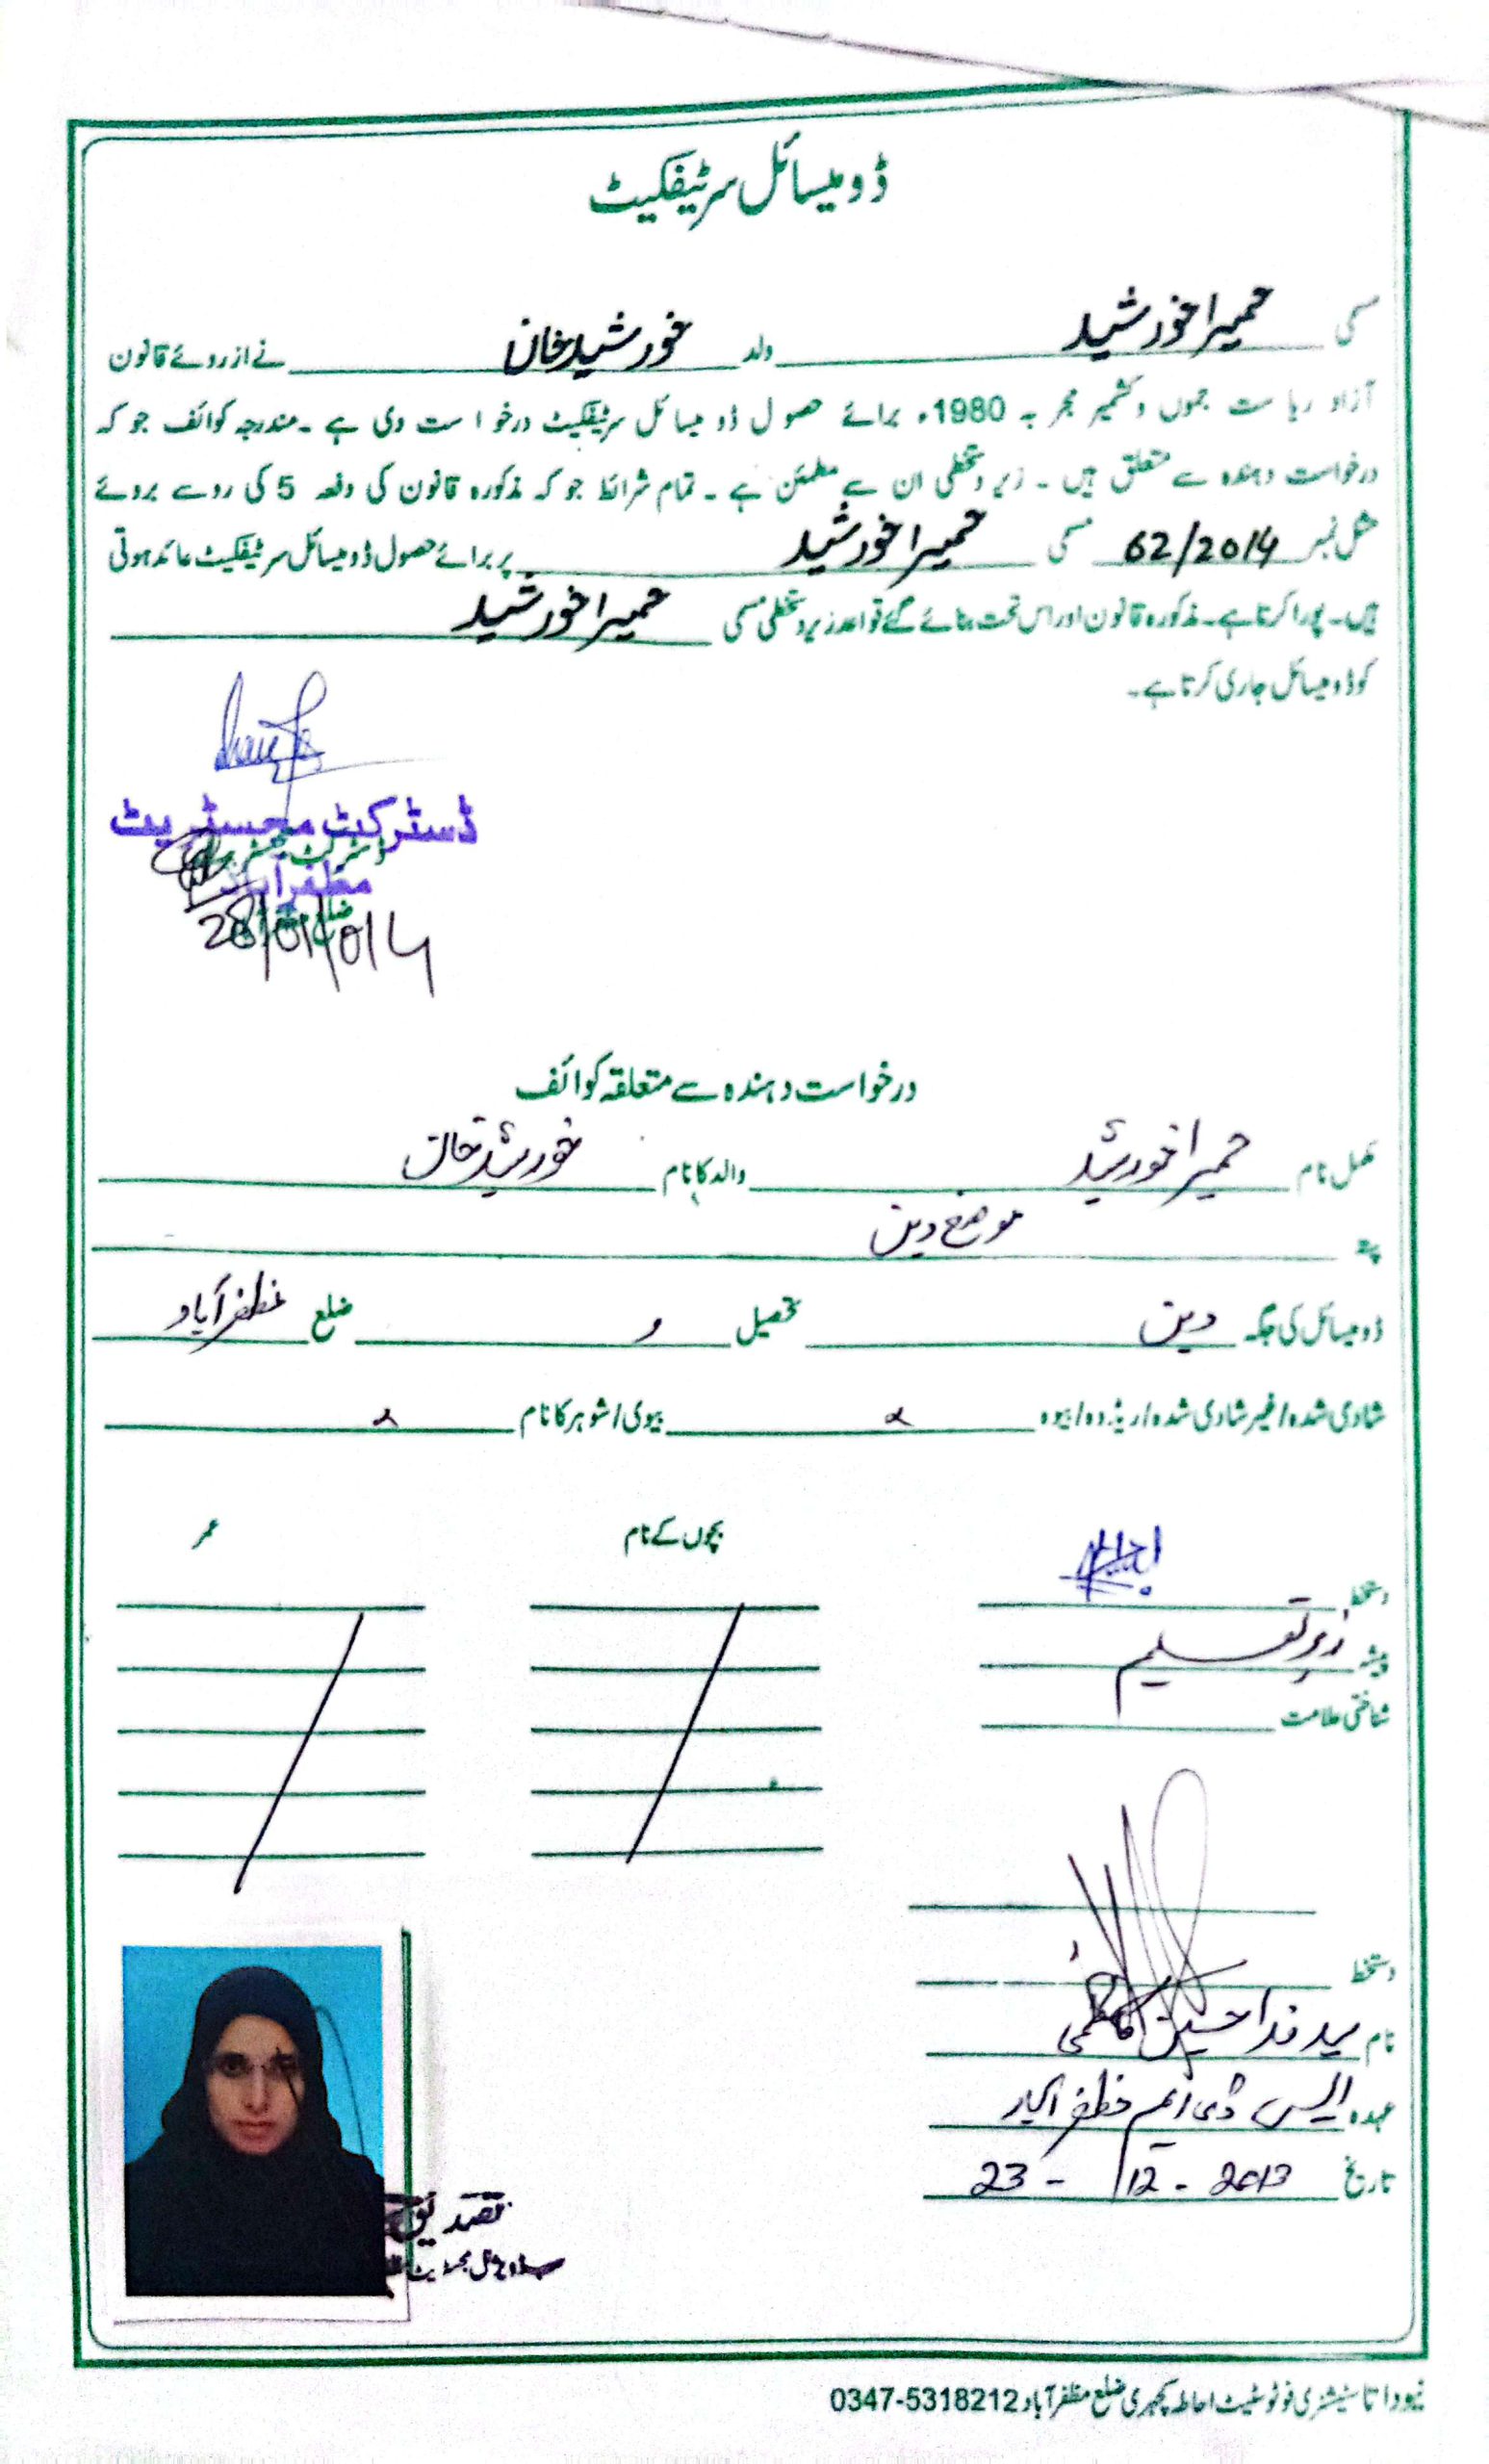 ڈومیسائل سرٹیفکیٹ
مسمی حمیرا خورشید ولد خورشید خان نے ازروئے قانون
آزاد ریاست جموں و کشمیر مجریہ 1980ء برائے حصول ڈومیسائل سرٹیفکیٹ درخواست دی ہے ۔ مندرجہ کوائف جو کہ
درخواست دہندہ سے متعلق ہیں ۔ زیر دستخطی ان سے مطمئن ہے ۔ تمام شرائط جو کہ مذکورہ قانون کی دفعہ 5 کی رو سے بروئے
مثل نمبر 62/2014 مسمی حمیرا خورشید پر برائے حصول ڈومیسائل سرٹیفکیٹ عائد ہوتی
ہیں۔ پورا کرتا ہے۔ مذکورہ قانون اور اس تحت بنائے گئے قواعد زیر دستخطی مسمی حمیرا خورشید
کو ڈومیسائل جاری کرتا ہے۔
ڈسٹرکٹ مجسٹریٹ
مظفرآباد
درخواست دہندہ سے متعلقہ کوائف
مکمل نام حمیرا خورشید والد کا نام خورشید خان
پتہ موضع دین
ڈومیسائل کی جگہ دین تحصیل و ضلع مظفرآباد
شادی شدہ/غیر شادی شدہ/رنڈوہ/بیوہ بیوی/شوہر کا نام
بچوں کے نام عمر
دستخط
پیشہ زیر تعلیم
شناختی علامت
دستخط
نام سید فدا حسین کاظمی
عہدہ ایس ڈی ایم مظفرآباد
تاریخ 23-12-2013
تصدیق
نیو داتا سٹیشنری فوٹوسٹیٹ احاطہ کچہری ضلع مظفرآباد 0347-5318212